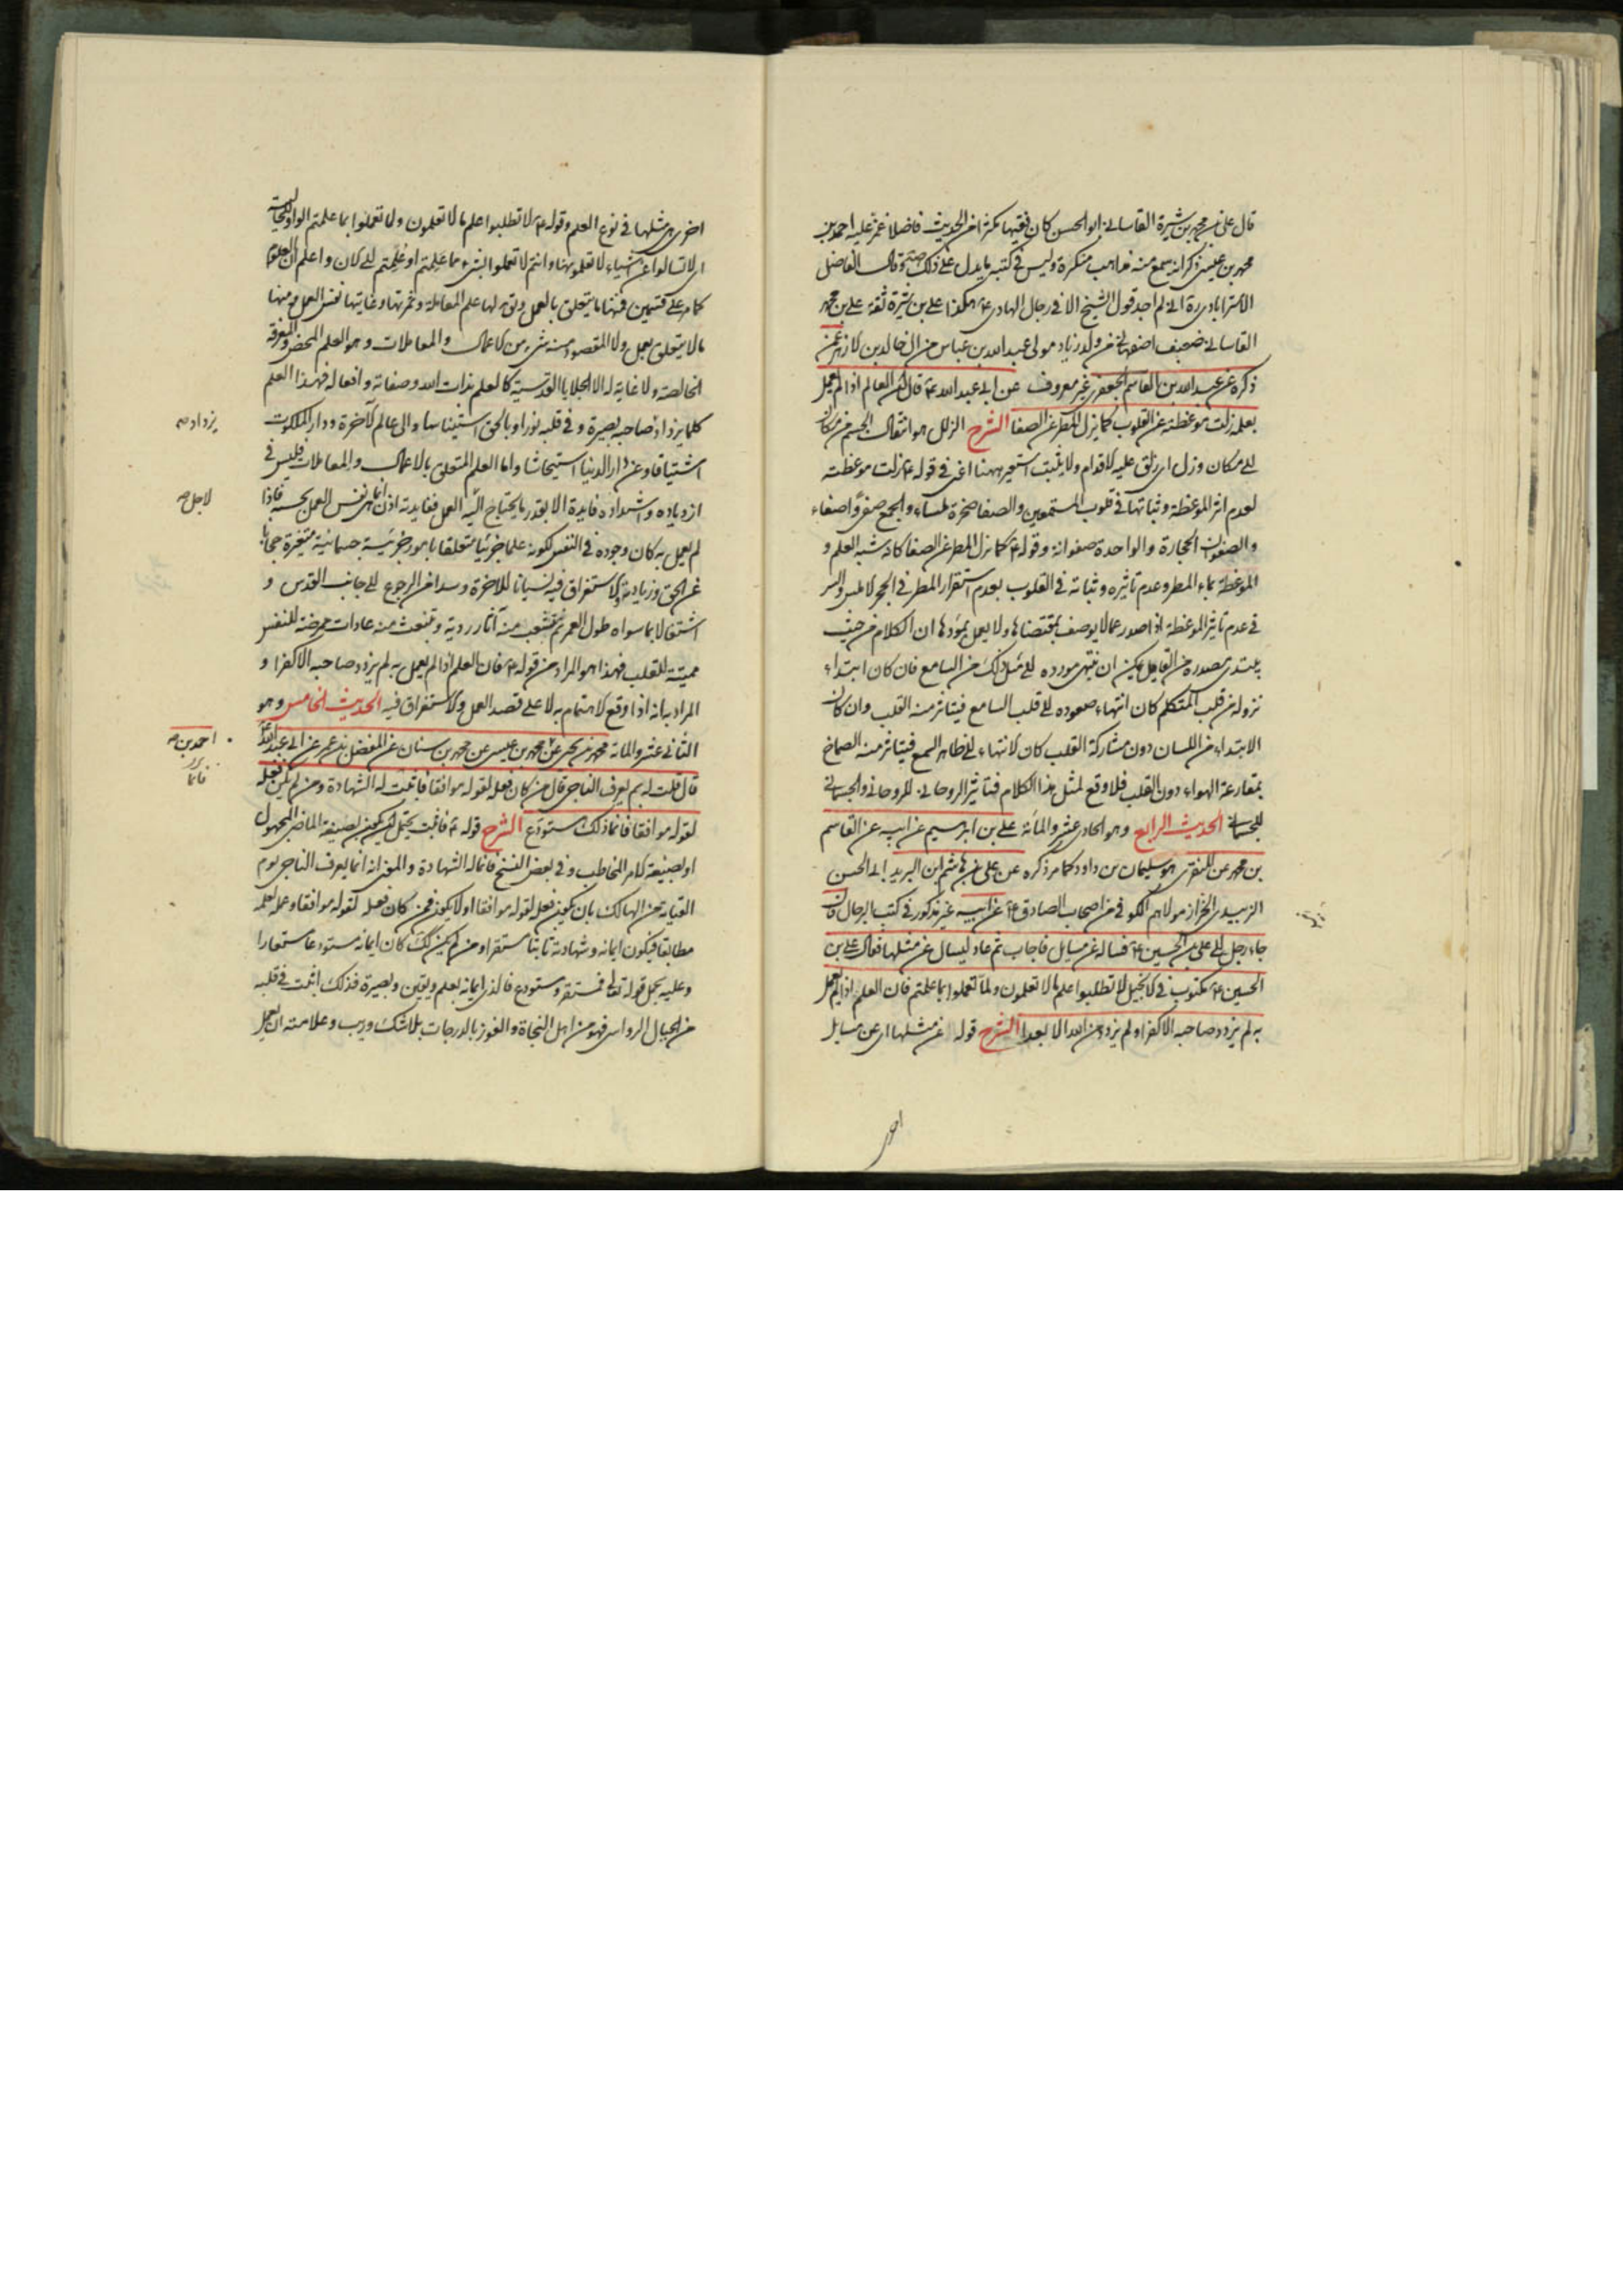 قال علي بن محمد بن شيرة القاساني ابو الحسن كان فقيها مكثرا من الحديث فاضلا غمز عليه احمد بن
محمد بن عيسى ذكر انه سمع منه مذاهب منكرة وليس في كتبه ما يدل على ذلك صح وقال الفاضل
الاسترابادي ره اني لم اجد قول الشيخ الا في رجال الهادي ع هكذا علي بن شيرة ثقة علي بن محمد
القاساني ضعيف اصفهاني من ولد زياد مولى عبد الله بن عباس من ال خالد بن الازهر عمن
ذكره عن عبد الله بن القاسم الجعفري غير معروف عن ابي عبد الله ع قال ان العالم اذا لم يعمل
بعلمه زلت موعظته عن القلوب كما يزل المطر عن الصفا الشرح الزلل هو انتقال الجسم من مكان
الى مكان وزل اي زلق عليه الاقدام ولا يثبت استعير ههنا اعني في قوله ع زلت موعظته
لعدم اثر الموعظة وثباتها في قلوب المستمعين والصفا صخرة ملساء والجمع صفى واصفاء
والصفوان الحجارة والواحدة صفوانة وقوله ع كما يزل المطر عن الصفا كانه شبه العلم و
الموعظة بماء المطر وعدم تاثيره وثباته في القلوب بعدم استقرار المطر في الحجر الاملس والسر
في عدم تاثير الموعظة اذا صدر عما لا يوصف بمقتضاها ولا يعمل بمؤداها ان الكلام من حيث
يبتدي مصدره من القايل يمكن ان ينتهي مورده الى مثل ذلك من السامع فان كان ابتداء
نزوله من قلب المتكلم كان انتهاء صعوده الى قلب السامع فيتاثر منه القلب وان كان
الابتداء من اللسان دون مشاركة القلب كان الانتهاء الى ظاهر السمع فيتاثر منه الصماخ
بمقارعة الهواء دون القلب فلا وقع لمثل هذا الكلام فتاثير الروحاني للروحاني والجسماني
للجسماني الحديث الرابع وهو الحادي عشر والمائة علي بن ابرهيم عن ابيه عن القاسم
بن محمد عن المنقري هو سليمان بن داود كما مر ذكره عن علي بن هاشم بن البريد ابي الحسن
الزبيدي الخزاز مولاهم الكوفي من اصحاب الصادق ع عن ابيه غير مذكور في كتب الرجال قال
جاء رجل الى علي بن الحسين ع فساله عن مسايل فاجاب ثم عاد ليسال عن مثلها فقال علي بن
الحسين ع مكتوب في الانجيل لا تطلبوا علم ما لا تعلمون ولما تعملوا بما علمتم فان العلم اذا لم يعمل
به لم يزدد صاحبه الا كفرا ولم يزدد من الله الا بعدا الشرح قوله عن مثلها اي عن مسايل
اخر
اخرى مثلها في نوع العلم وقوله ع لا تطلبوا علم ما لا تعلمون ولا تعملوا بما علمتم الواو للحالية
اي لا تسالوا عن اشياء لا تعلمونها وانتم لا تعملوا بشيء مما علمتم او علمتم الى الان واعلم ان العلوم
كما مر على قسمين فمنها ما يتعلق بالعمل ويق لها علم المعاملة وثمرتها وغايتها نفس العمل ومنها
ما لا يتعلق بعمل ولا المقصود منه شيء من الاعمال والمعاملات وهو العلم المحض والمعرفة
الخالصة ولا غاية له الا الجلايا القدسية كالعلم بذات الله وصفاته وافعاله فهذا العلم
كلما يزداد صاحبه بصيرة وفي قلبه نورا وبالحق استيناسا والى عالم الاخرة ودار الملكوت
اشتياقا وعن دار الدنيا استيحاشا واما العلم المتعلق بالاعمال والمعاملات فليس في
ازدياده واشتداده فايدة الا بقدر ما يحتاج اليه العمل فغايته اذن انما هي نفس العمل بحسبه فاذا
لم يعمل به كان وجوده في النفس لكونه علما جزئيا متعلقا بامور جزئية جسمانية متغيرة حجابا
عن الحق وزيادته والاستغراق فيه نسيانا للاخرة وسدا من الرجوع الى جانب القدس و
اشتغالا بما سواه طول العمر ثم يتشعب منه آثار ردية وتنبعث منه عادات ممرضة للنفس
مميتة للقلب فهذا هو المراد من قوله ع فان العلم اذا لم يعمل به لم يزدد صاحبه الا كفرا و
المراد به انه اذا وقع الاهتمام به لا على قصد العمل والاستغراق فيه الحديث الخامس وهو
الثاني عشر والمائة محمد بن يحيى عن محمد بن عيسى عن محمد بن سنان عن المفضل بن عمر عن ابي عبد الله ع
قال قلت له بم يعرف الناجي قال من كان فعله لقوله موافقا فاثبت له الشهادة ومن لم يكن فعله
لقوله موافقا فانما ذلك مستودع الشرح قوله ع فاثبت يحتمل ان يكون بصيغة الماضي المجهول
او بصيغة الامر المخاطب وفي بعض النسخ فانما له الشهادة والمعنى انه انما يعرف الناجي يوم
القيامة من الهالك بان يكون فعله لقوله موافقا او لا يكون فمن كان فعله لقوله موافقا وعمله لعلمه
مطابقا فيكون ايمانه وشهادته ثابتا مستقرا ومن لم يكن كك كان ايمانه مستودعا مستعارا
وعليه يحمل قوله تعالى فمستقر ومستودع فالذي ايمانه بعلم ويقين وبصيرة فذلك اثبت في قلبه
من الجبال الرواسي فهو من اهل النجاة والفوز بالدرجات بلا شك وريب وعلامته ان يعمل
يزداد صح
لاجل صح
احمد بن صح
فانما